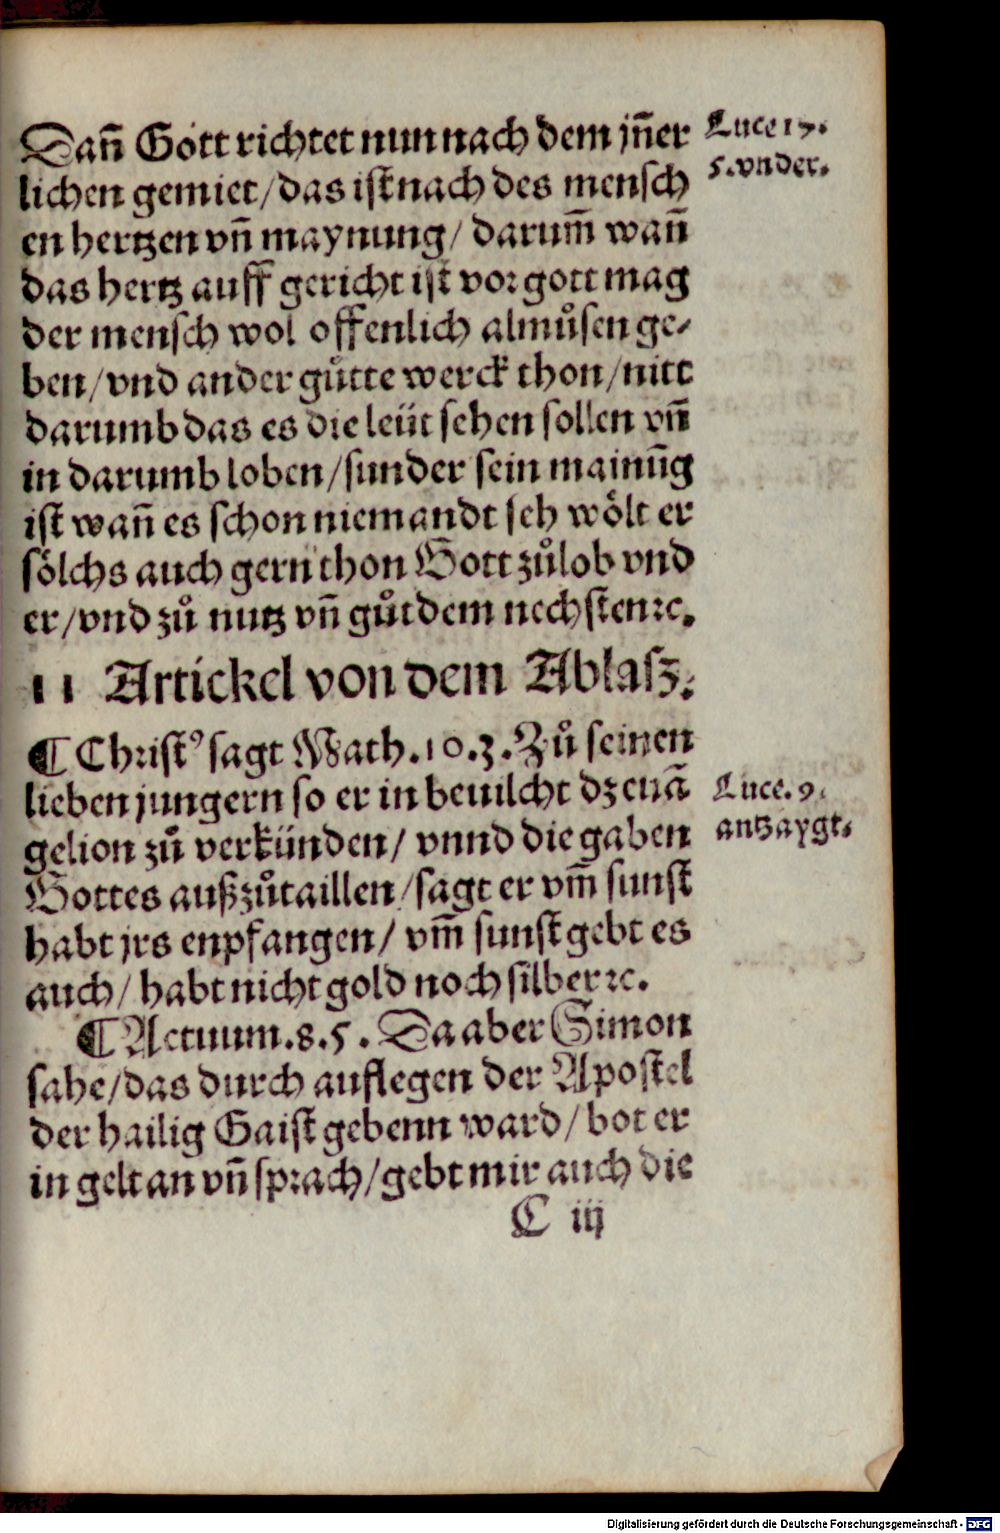 Dañ Gott richtet nun nach dem jñer
lichen gemiet/das ist nach des mensch
en hertzen vñ maynung/ darum̃ wañ
das hertz auff gericht ist vor gott mag
der mensch wol offenlich almůsen ge-
ben/vnd ander gůtte werck thon/nitt
darumb das es die leüt sehen sollen vñ
in darumb loben/sunder sein mainũg
ist wañ es schon niemandt seh wölt er
sölchs auch gern thon Gott zůlob vnd
er/vnd zů nutz vñ gůt dem nechsten ꝛc.
11 Artickel von dem Ablasz.
¶ Christꝰ sagt Math.10.3. Zů seinen
lieben jungern so er in beuilcht dz euã
gelion zů verkünden/ vnnd die gaben
Gottes außzůtaillen/sagt er vm̃ sunst
habt jrs enpfangen/ vm̃ sunst gebt es
auch/ habt nicht gold noch silber ꝛc.
¶ Actuum.8.5. Da aber Simon
sahe/das durch auflegen der Apostel
der hailig Gaist gebenn ward/ bot er
in gelt an vñ sprach/gebt mir auch die
C iij
Luce 17.
5.vnder.
Luce.9.
antzaygt.
Digitalisierung gefördert durch die Deutsche Forschungsgemeinschaft - DFG